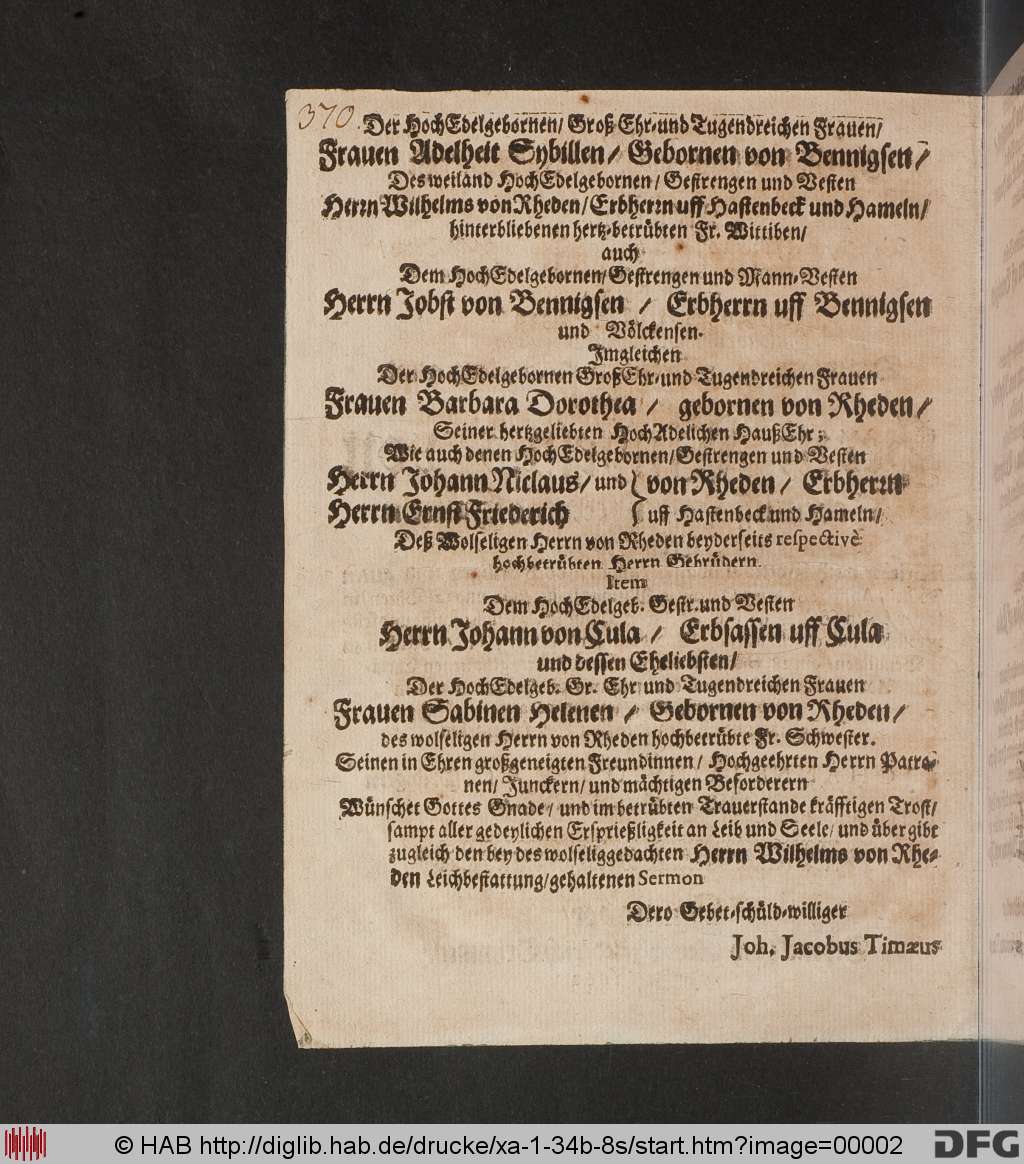 370.
Der HochEdelgebornen/ Groß Ehr-und Tugendreichen Frauen/
Frauen Adelheit Sybillen/ Gebornen von Bennigsen/
Des weiland HochEdelgebornen/ Gestrengen und Vesten
Herrn Wilhelms von Rheden/ Erbherrn uff Hastenbeck und Hameln/
hinterbliebenen hertz-betrübten Fr. Wittiben/
auch
Dem HochEdelgebornen/ Gestrengen und Mann-Vesten
Herrn Jobst von Bennigsen / Erbherrn uff Bennigsen
und Völckensen.
Imgleichen
Der HochEdelgebornen GroßEhr-und Tugendreichen Frauen
Frauen Barbara Dorothea / gebornen von Rheden/
Seiner hertzgeliebten HochAdelichen HaußEhr;
Wie auch denen HochEdelgebornen/ Gestrengen und Vesten
Herrn Johann Niclaus/ und } von Rheden/ Erbherrn
Herrn Ernst Friederich } uff Hastenbeck und Hameln/
Deß Wolseligen Herrn von Rheden beyderseits respectivè
hochbetrübten Herrn Gebrüdern.
Item
Dem HochEdelgeb. Gestr. und Vesten
Herrn Johann von Cula / Erbsassen uff Cula
und dessen Eheliebsten/
Der HochEdelgeb. Gr. Ehr und Tugendreichen Frauen
Frauen Sabinen Helenen / Gebornen von Rheden/
des wolseligen Herrn von Rheden hochbetrübte Fr. Schwester.
Seinen in Ehren großgeneigten Freundinnen/ Hochgeehrten Herrn Patro-
nen/ Junckern/ und mächtigen Beforderern
Wünschet Gottes Gnade/ und im betrübten Trauerstande kräfftigen Trost/
sampt aller gedeylichen Ersprießligkeit an Leib und Seele/ und über gibt
zugleich den bey des wolseliggedachten Herrn Wilhelms von Rhe-
den Leichbestattung/ gehaltenen Sermon
Dero Gebet-schüld-williger
Joh. Jacobus Timæus
© HAB http://diglib.hab.de/drucke/xa-1-34b-8s/start.htm?image=00002
DFG